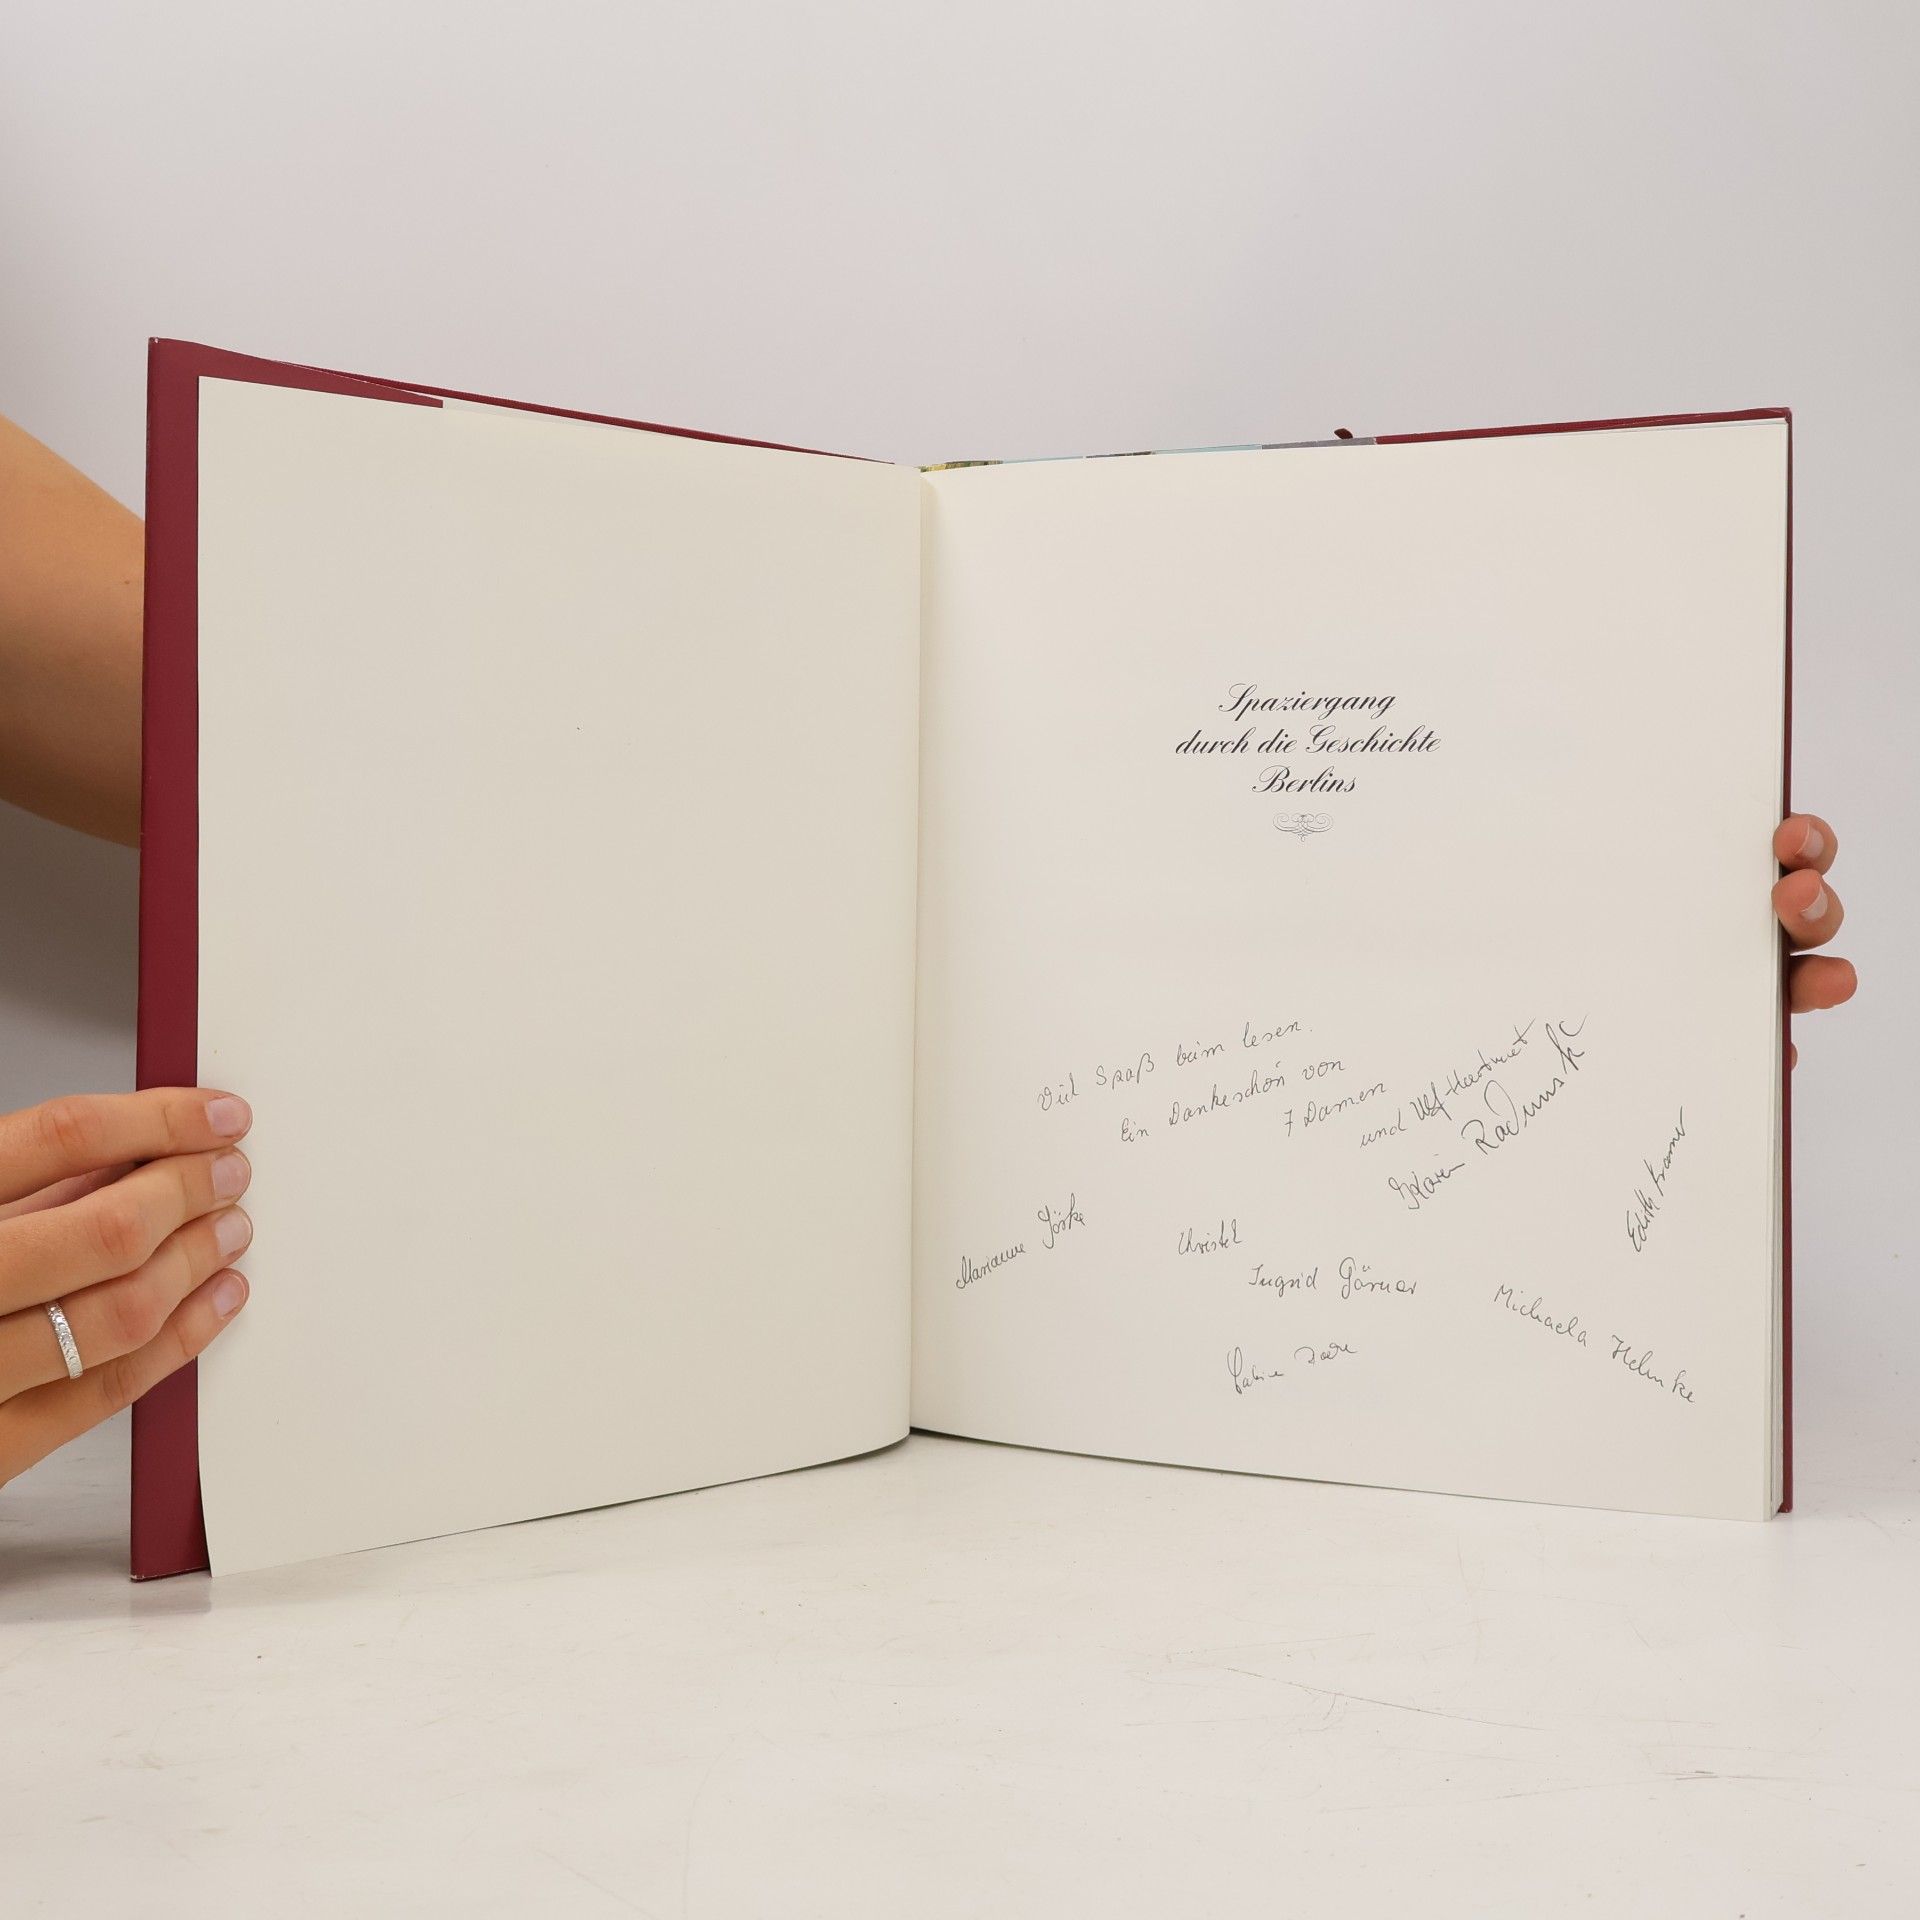 Spaziergang
durch die Geschichte
Berlins
Viel Spaß beim lesen.
Ein Dankeschön von
7 Damen
und Ulf-Hartmut
Karin Radunski
Edith Kramer
Marianne Jöske
Christel
Ingrid Görner
Michaela Helmke
Sabine